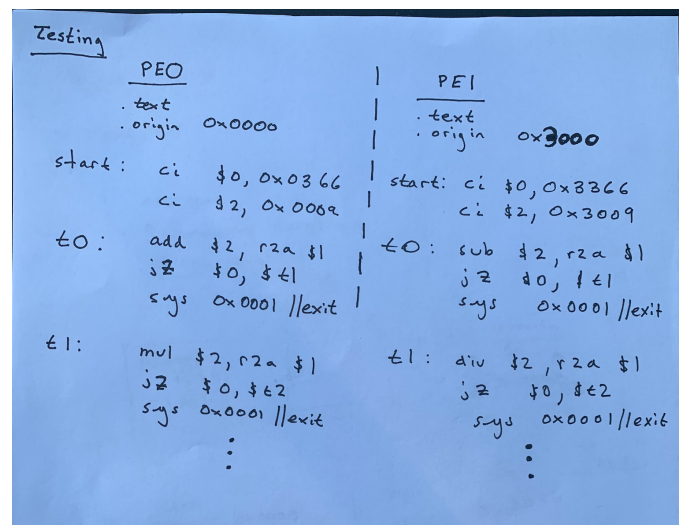 Testing
PE0
.text
.origin 0x0000
start: ci $0, 0x0366
ci $2, 0x0009
t0: add $2, r2a $1
jz $0, $t1
sys 0x0001 //exit
t1: mul $2, r2a $1
jz $0, $t2
sys 0x0001 //exit
⋮
PE1
.text
.origin 0x3000
start: ci $0, 0x3366
ci $2, 0x3009
t0: sub $2, r2a $1
jz $0, $t1
sys 0x0001 //exit
t1: div $2, r2a $1
jz $0, $t2
sys 0x0001 //exit
⋮